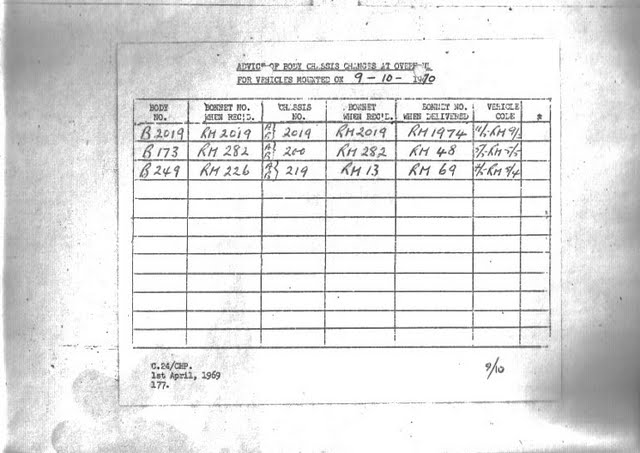 ADVICE OF BODY CHASSIS CHANGES AT OVERHAUL
FOR VEHICLES MOUNTED ON 9-10-1970
BODY NO. BONNET NO. WHEN REC'D. CHASSIS NO. BONNET WHEN REC'D. BONNET NO. WHEN DELIVERED VEHICLE CODE *
B2019 RM2019 2019 RM2019 RM1974
B173 RM 282 RM 282 RM 48
B249 RM 226 219 RM 13 RM 69
C.24/CHP. 9/10
1st April, 1969
177.